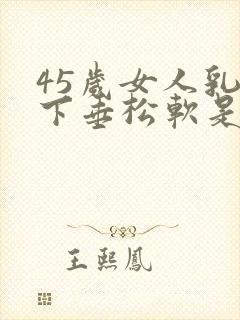 45歲女人乳
下垂松軟是
王熙鳳